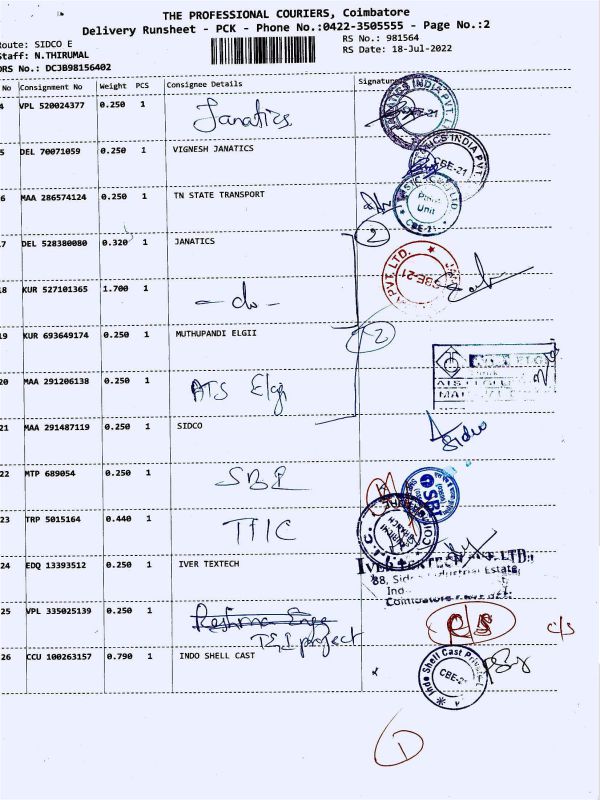 THE PROFESSIONAL COURIERS, Coimbatore
Delivery Runsheet - PCK - Phone No.:0422-3505555 - Page No.:2
Route: SIDCO E
RS No.: 981564
Staff: N.THIRUMAL
RS Date: 18-Jul-2022
DRS No.: DCJB98156402
No Consignment No Weight PCS Consignee Details Signature
4 VPL 520024377 0.250 1 Janatics
5 DEL 70071059 0.250 1 VIGNESH JANATICS
6 MAA 286574124 0.250 1 TN STATE TRANSPORT
17 DEL 528380080 0.320 1 JANATICS
18 KUR 527101365 1.700 1 - do -
19 KUR 693649174 0.250 1 MUTHUPANDI ELGII
20 MAA 291206138 0.250 1 ATS Elgi
21 MAA 291487119 0.250 1 SIDCO
22 MTP 689054 0.250 1 SBI
23 TRP 5015164 0.440 1 TIIC
24 EDQ 13393512 0.250 1 IVER TEXTECH
25 VPL 335025139 0.250 1
project
26 CCU 100263157 0.790 1 INDO SHELL CAST
INDIA PVT.
CBE-21
CBE-21
Unit
CBE-21
2
PVT. LTD.
CBE-21
2
Sidco
SBI
IVER TEXTECH PVT. LTD.,
88, Sidco Industrial Estate,
Coimbatore
C/S
c/s
Indo Shell Cast Private
CBE-21
1